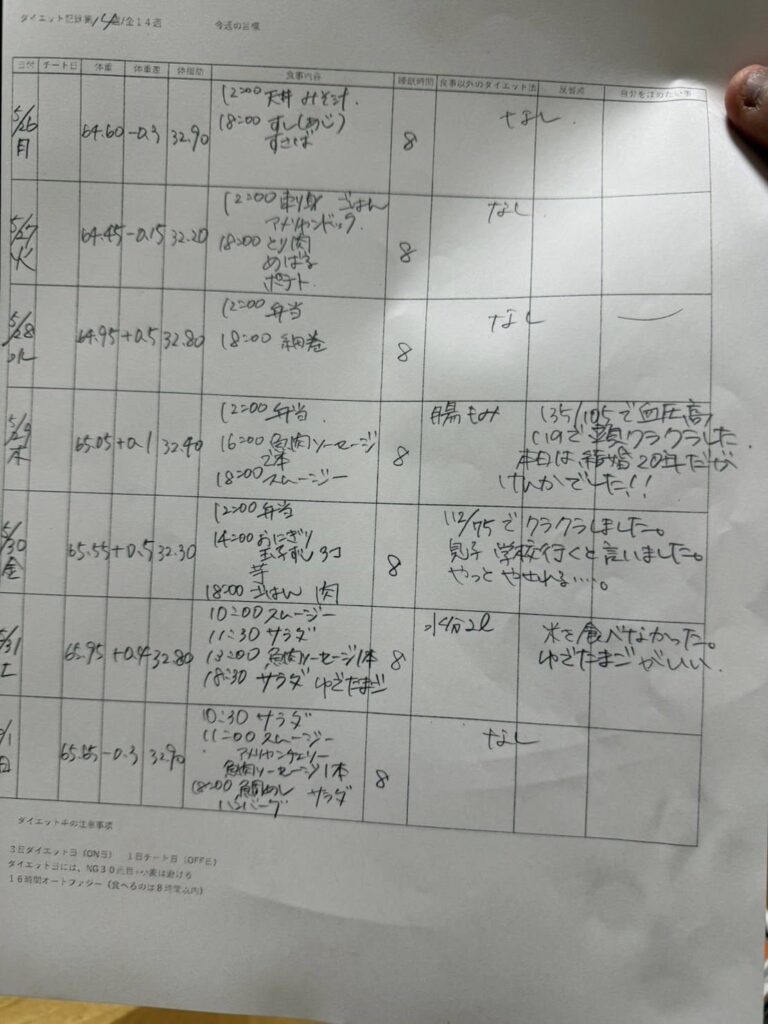 ダイエット記録第14週/全14週
今週の目標
日付 チート日 体重 体重差 体脂肪 食事内容 睡眠時間 食事以外のダイエット法 反省点 自分をほめたい事
5/26 月 64.60 -0.3 32.90 8 なし
12:00 天丼 みそ汁
18:00 すし(あじ)
5/27 火 64.45 -0.15 32.20 8 なし
12:00 刺身 ごはん
アメリカンドック
18:00 とり肉
めばる
ポテト
5/28 水 64.95 +0.5 32.80 8 なし
12:00 弁当
18:00
5/29 木 65.05 +0.1 32.40 8 腸もみ
12:00 弁当
16:00 魚肉ソーセージ
2本
18:00 スムージー
135/105で血圧高
119で頭クラクラした
本日は結婚20年だが
けんかでした!!
5/30 金 65.55 +0.5 32.30 8
12:00 弁当
14:00 おにぎり
芋
18:00 ごはん 肉
112/75でクラクラしました。
息子 学校行くと言いました。
やっとやせれる……。
5/31 土 65.95 +0.4 32.80 8 水分2ℓ
10:00 スムージー
11:30 サラダ
13:00 魚肉ソーセージ1本
18:30 サラダ ゆでたまご
米を食べなかった。
ゆでたまごがいい
6/1 日 -0.3 32.90 8 なし
10:30 サラダ
11:00 スムージー
アメリカンチェリー
魚肉ソーセージ1本
18:00 鯛めし サラダ
ハンバーグ
ダイエット中の注意事項
3日ダイエット日(ON日) 1日チート日(OFF日)
ダイエット日には、NG30点
16時間オートファジー(食べるのは8時間以内)